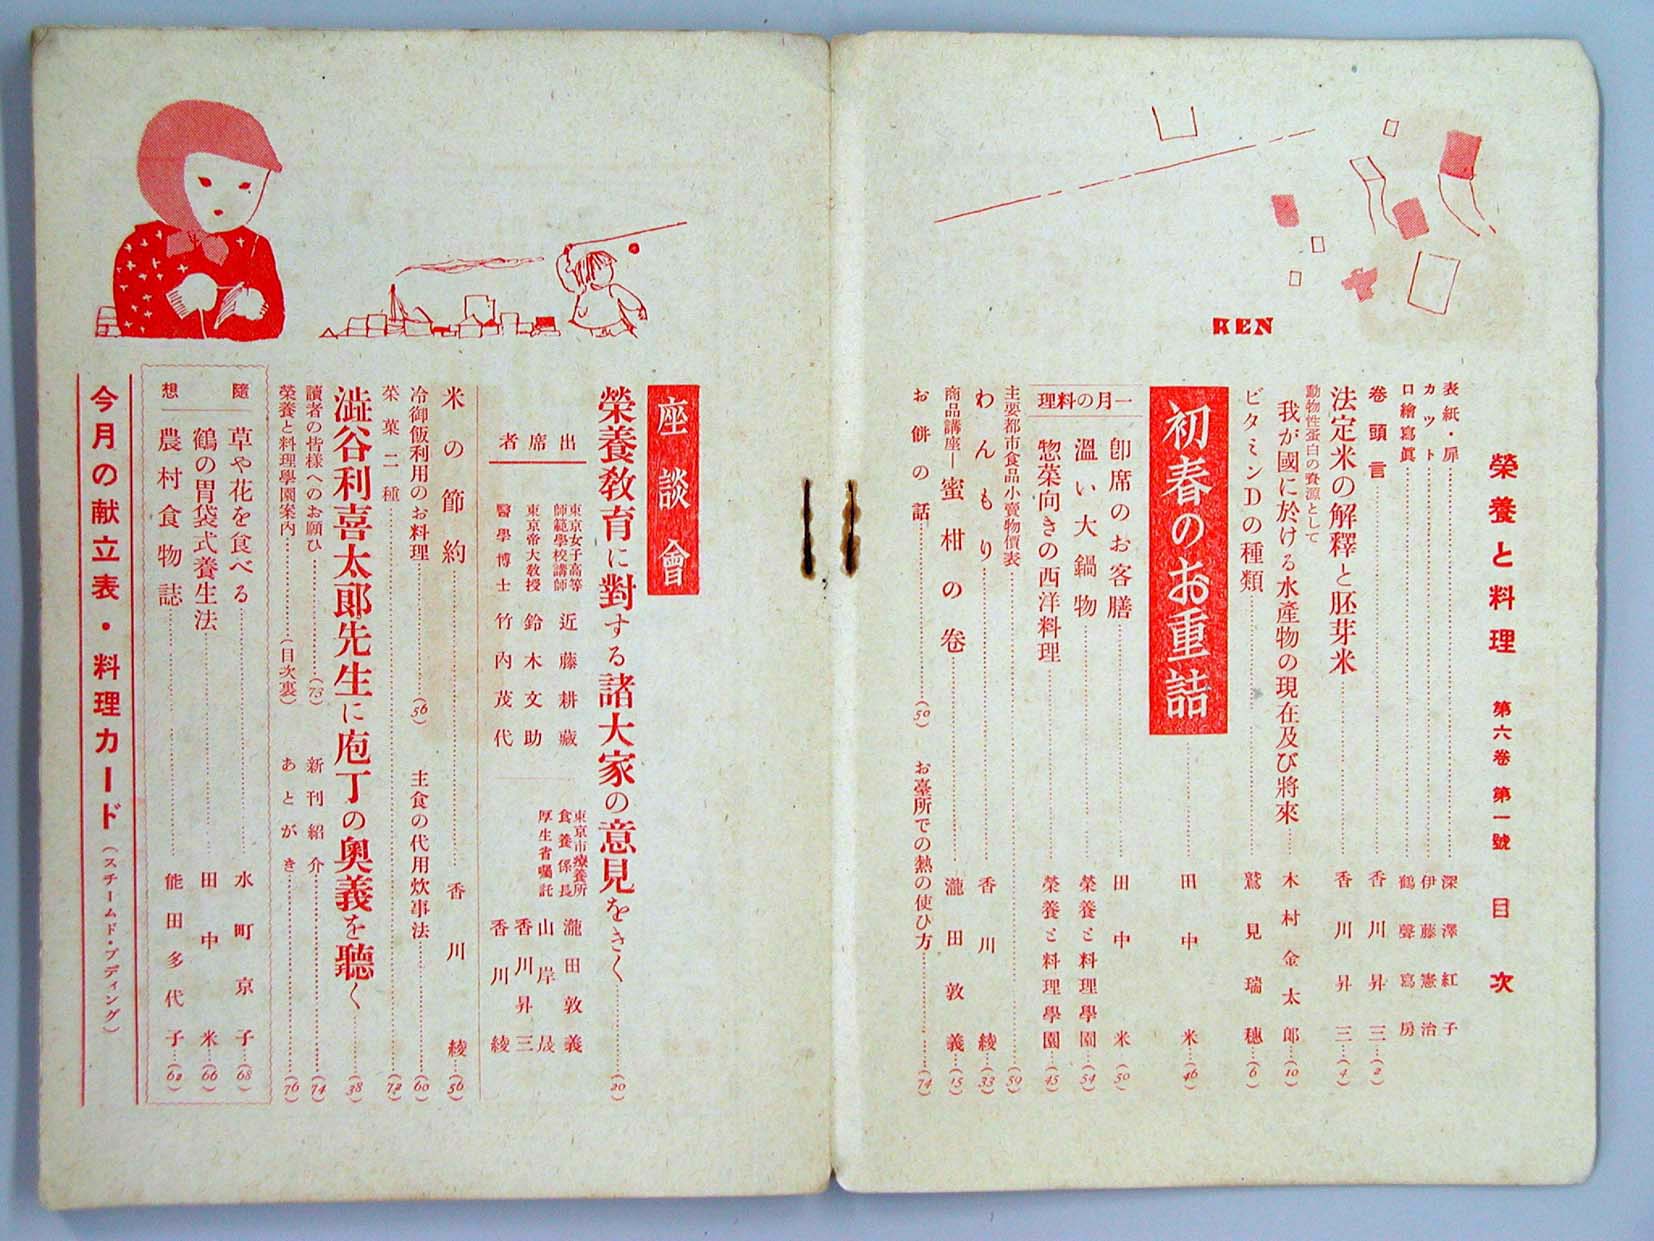 REN
榮養と料理 第六卷 第一號 目次
表紙・扉 深澤紅子
カット 伊藤憲治
口繪寫眞 鶴聲寫房
卷頭言 香川昇三 (2)
法定米の解釋と胚芽米 香川昇三 (4)
動物性蛋白の資源として
我が國に於ける水產物の現在及び將來 木村金太郎 (10)
ビタミンDの種類 鷲見瑞穗 (6)
初春のお重詰 田中米 (46)
一月の料理
卽席のお客膳 田中米 (50)
溫い大鍋物 榮養と料理學園 (54)
惣菜向きの西洋料理 榮養と料理學園 (45)
主要都市食品小賣物價表 (59)
わんもり 香川綾 (33)
商品講座―蜜柑の卷 瀧田敦義 (15)
お餅の話 (50)
お臺所での熱の使ひ方 (74)
座談會
榮養敎育に對する諸大家の意見をきく (20)
出席者
東京女子高等師範學校講師 近藤耕藏
東京帝大敎授 鈴木文助
醫學博士 竹內茂代
東京市療養所食養係長 瀧田敦義
厚生省囑託 山岸晟
香川昇三
香川綾
米の節約 香川綾 (56)
冷御飯利用のお料理 (56)
主食の代用炊事法 (60)
菜菓二種 (72)
澁谷利喜太郎先生に庖丁の奧義を聽く (38)
讀者の皆樣へのお願ひ (73)
新刊紹介 (74)
榮養と料理學園案內 (目次裏)
あとがき (76)
隨想
草や花を食べる 水町京子 (68)
鶴の胃袋式養生法 田中米 (66)
農村食物誌 能田多代子 (62)
今月の献立表・料理カード (スチームド・プディング)